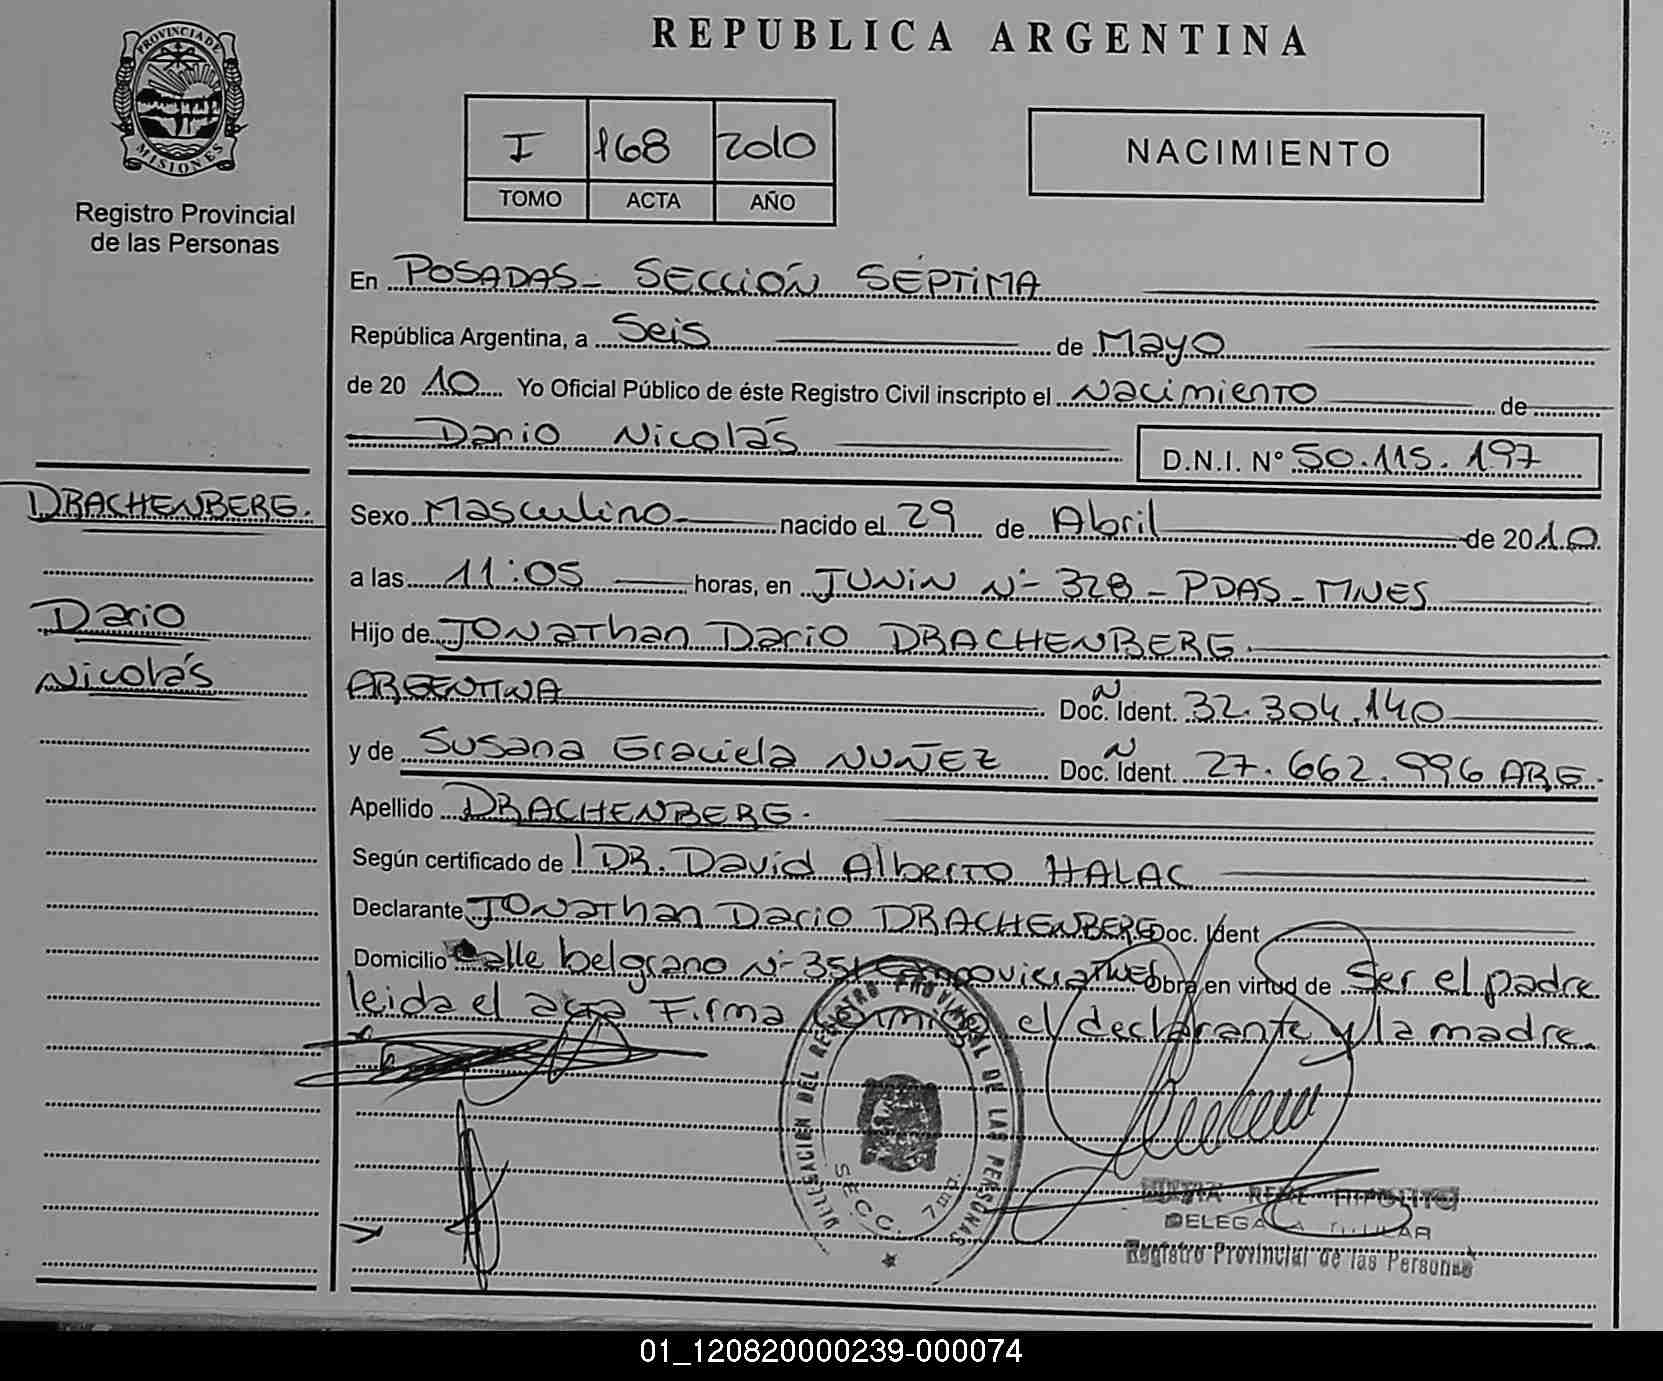 PROVINCIA DE
MISIONES
Registro Provincial
de las Personas
REPUBLICA ARGENTINA
I 168 2010
TOMO ACTA AÑO
NACIMIENTO
En POSADAS - SECCIÓN SÉPTIMA
República Argentina, a Seis de Mayo
de 2010 Yo Oficial Público de éste Registro Civil inscripto el Nacimiento de
Dario Nicolás D.N.I. N° 50.115.197
DRACHENBERG.
Dario
Nicolás
Sexo Masculino nacido el 29 de Abril de 2010
a las 11:05 horas, en JUNIN N- 328 - PDAS - MNES
Hijo de JONATHAN Dario DRACHENBERG.
ARGENTINA Doc. Ident. 32.304.140
y de Susana Graciela NUÑEZ Doc. Ident. 27.662.996 ARG.
Apellido DRACHENBERG.
Según certificado de DR. David Alberto HALAC
Declarante JONATHAN Dario DRACHENBERG Doc. Ident
Domicilio Calle belgrano N- 351 Obra en virtud de Ser el padre
leida el acta Firma el declarante y la madre.
DELEGACIÓN DEL REGISTRO PROVINCIAL DE LAS PERSONAS
SECC. 7ma.
RENE HIPOLITO
DELEGADA TITULAR
Registro Provincial de las Personas
01_120820000239-000074